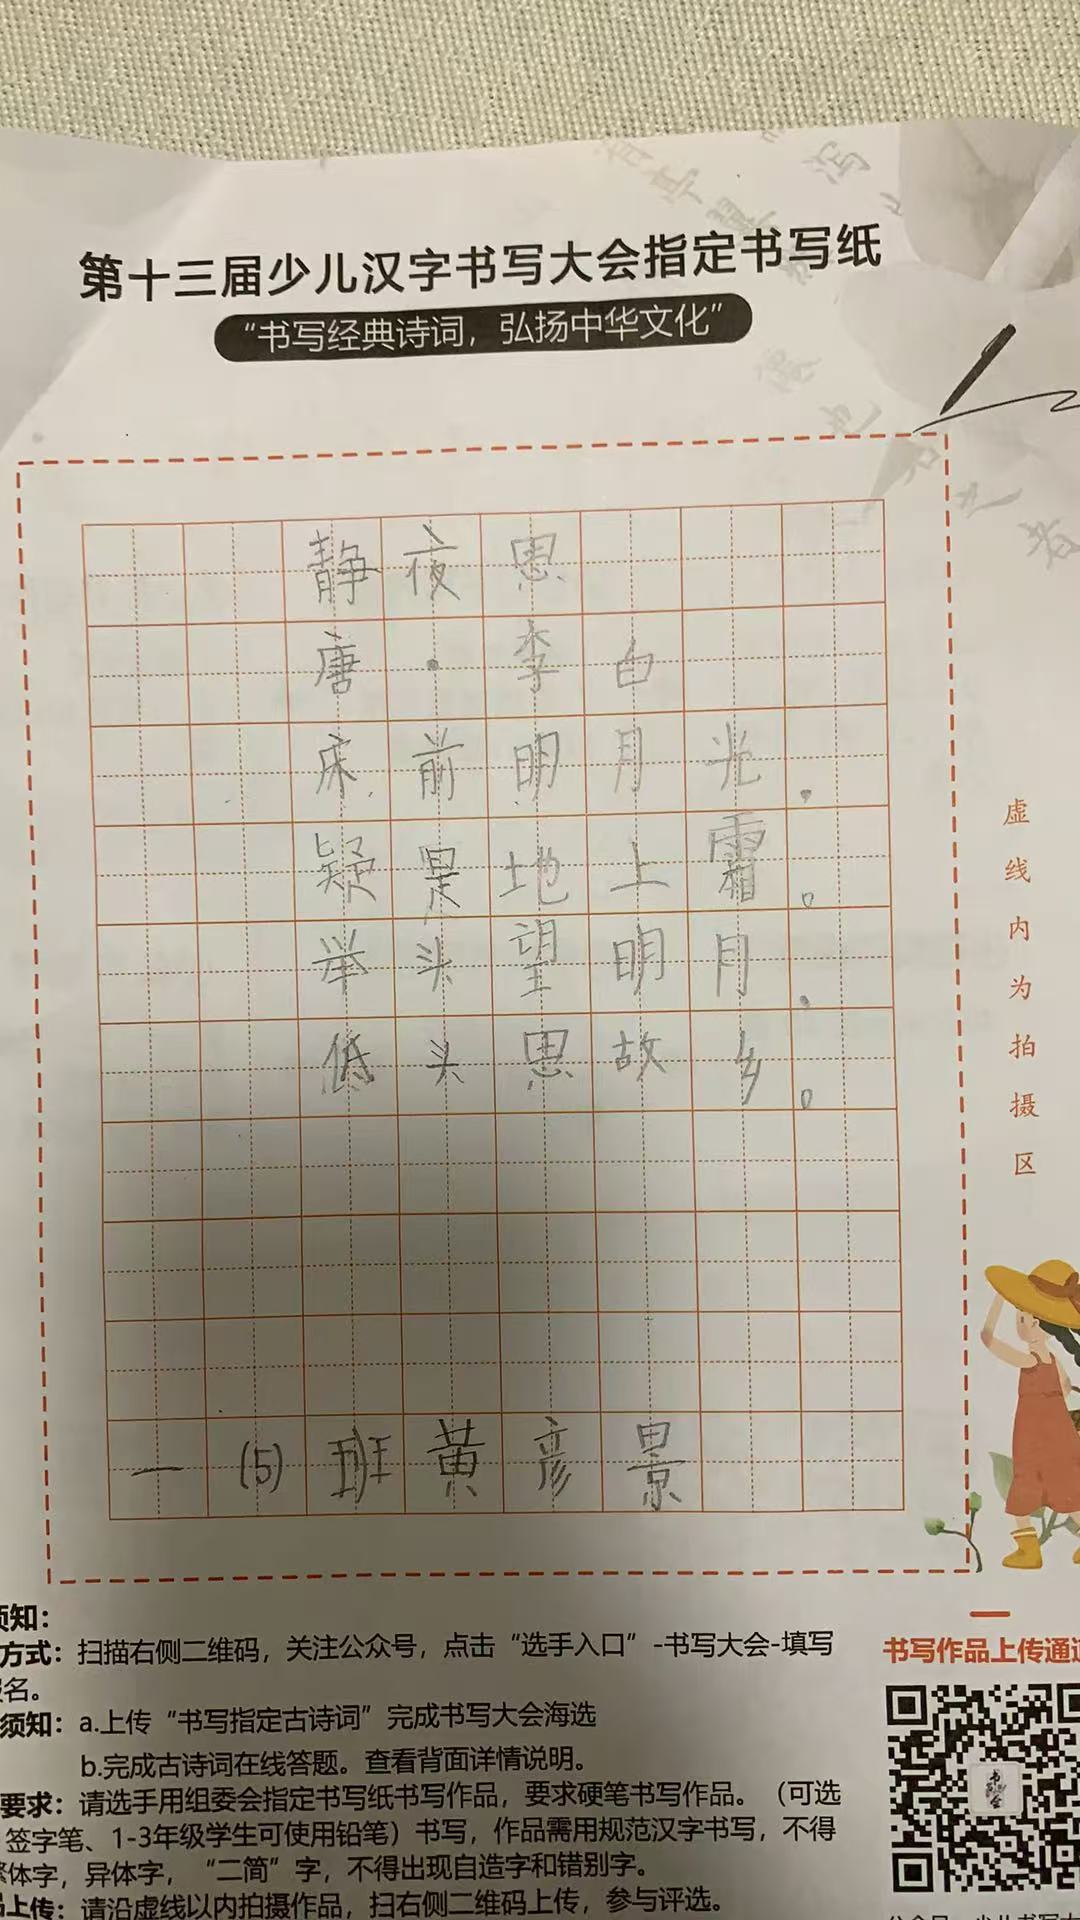 第十三届少儿汉字书写大会指定书写纸
“书写经典诗词，弘扬中华文化”
静夜思
唐·李白
床前明月光.
疑是地上霜。
举头望明月.
低头思故乡。
一(5)班黄彦景
虚线内为拍摄区
须知：
方式：扫描右侧二维码，关注公众号，点击“选手入口”-书写大会-填写
报名。
须知：a.上传“书写指定古诗词”完成书写大会海选
b.完成古诗词在线答题。查看背面详情说明。
要求：请选手用组委会指定书写纸书写作品，要求硬笔书写作品。（可选
签字笔、1-3年级学生可使用铅笔）书写，作品需用规范汉字书写，不得
繁体字，异体字，“二简”字，不得出现自造字和错别字。
上传：请沿虚线以内拍摄作品，扫右侧二维码上传，参与评选。
书写作品上传通道